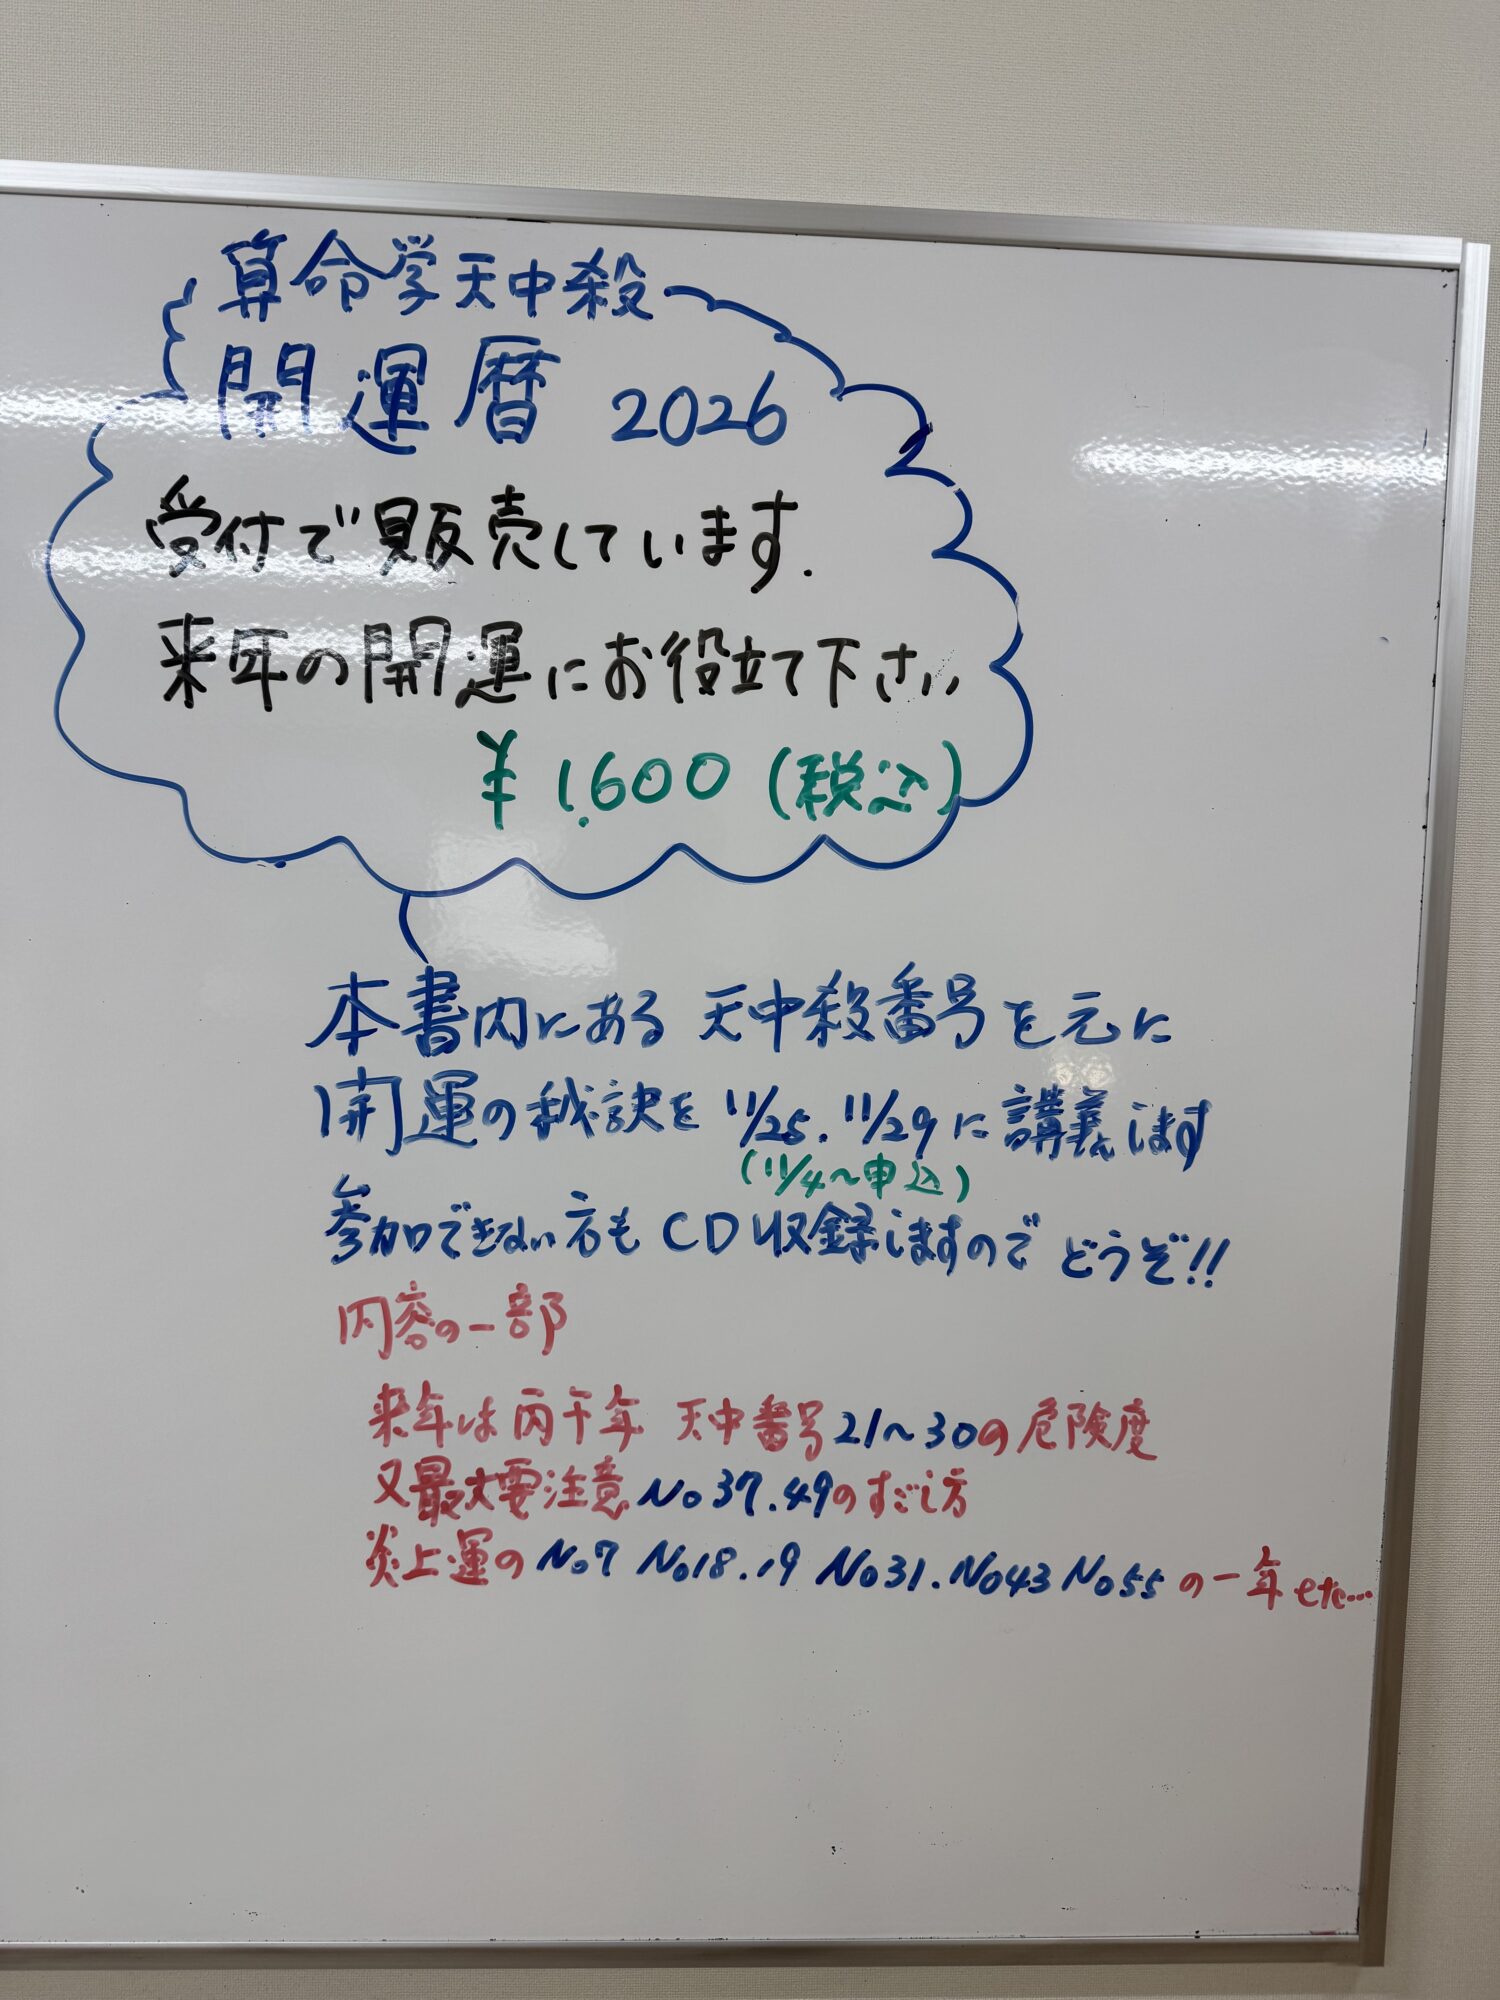 算命学天中殺
開運暦 2026
受付で販売しています.
来年の開運にお役立て下さい
¥1,600 (税込)
本書内にある 天中殺番号を元に
開運の秘訣を 11/25. 11/29に講義します
(11/4〜申込)
参加できない方も CD収録しますので どうぞ!!
内容の一部
来年は丙午年 天中番号21〜30の危険度
又最大要注意 No37.49のすごし方
炎上運の No7 No18.19 No31.No43 No55 の一年 etc...